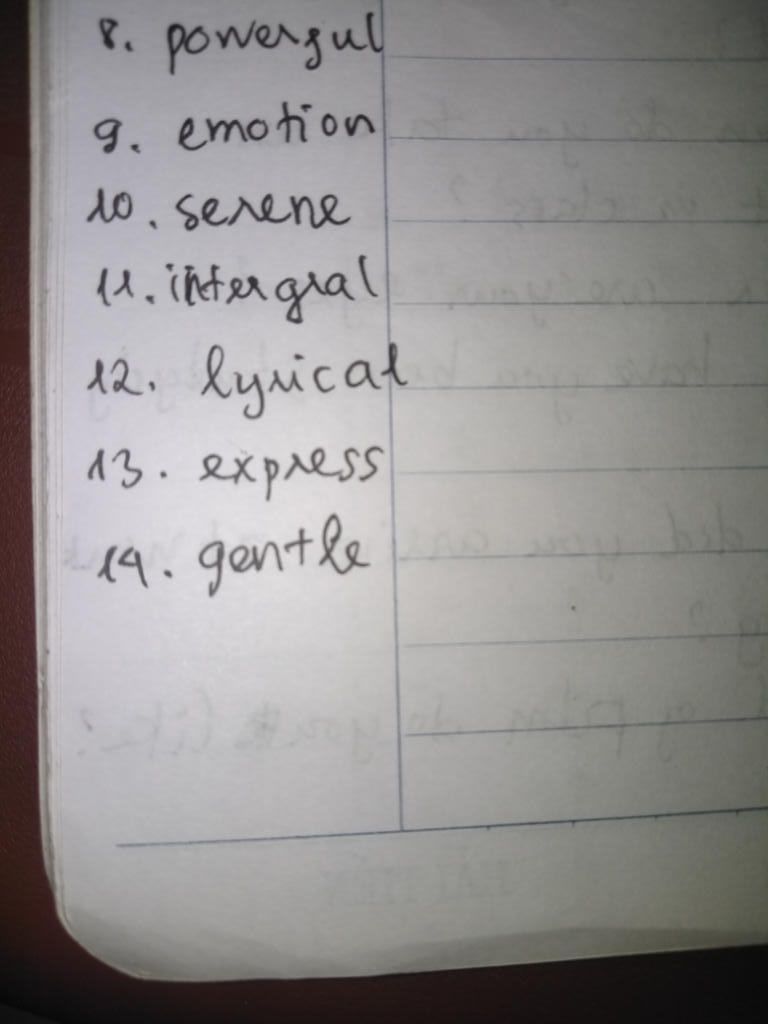 8. powerful
9. emotion
10. serene
11. intergral
12. lyrical
13. express
14. gentle